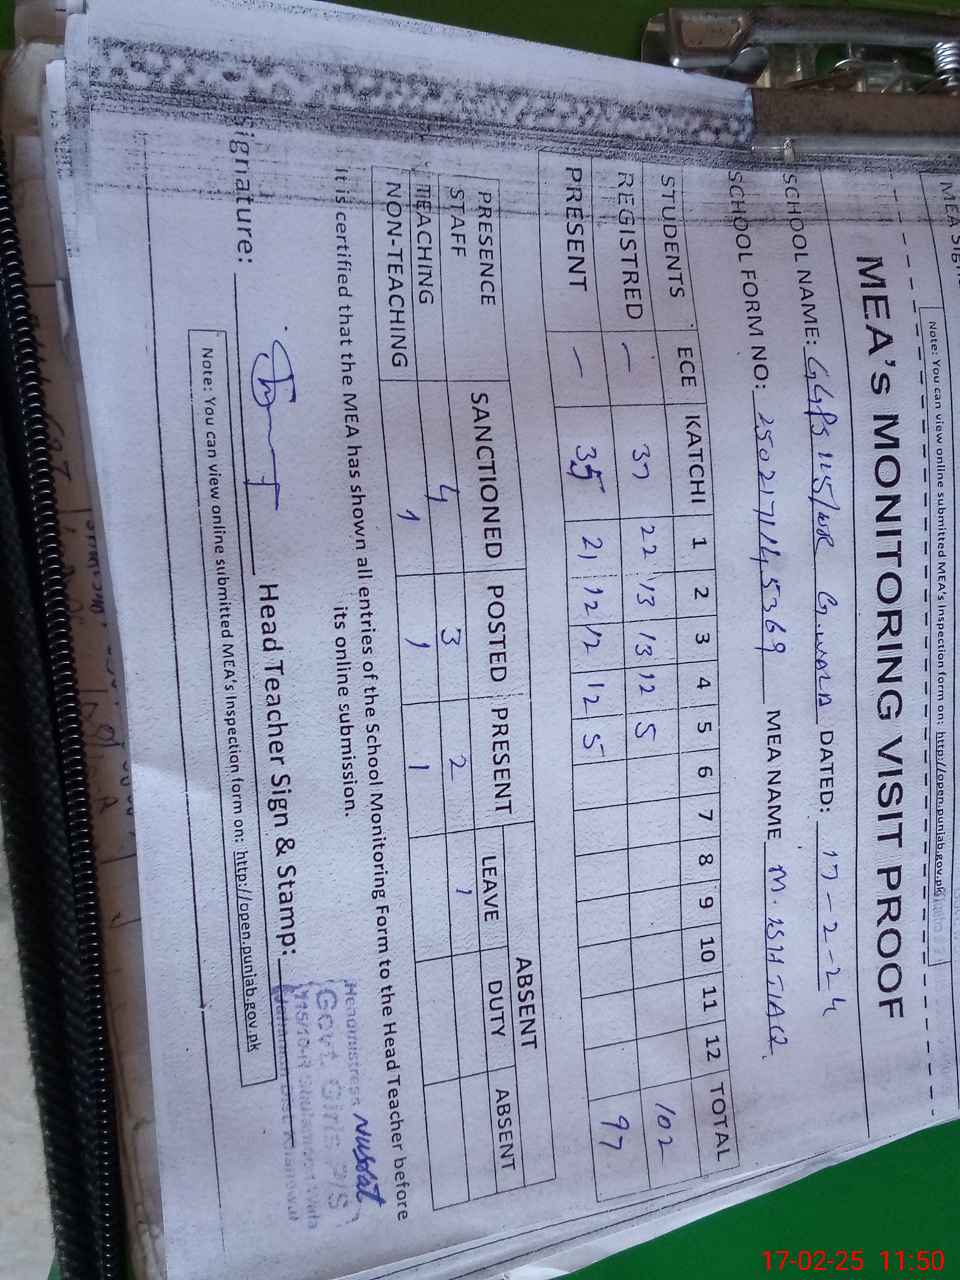 MEA Sign
Note: You can view online submitted MEA's Inspection form on: http://open.punjab.gov.pk
MEA's MONITORING VISIT PROOF
SCHOOL NAME: GGPS 115/10R G.WALA DATED: 17-2-24
SCHOOL FORM NO: 2502171145369 MEA NAME M. ISHTIAQ
STUDENTS ECE KATCHI 1 2 3 4 5 6 7 8 9 10 11 12 TOTAL
REGISTRED — 37 22 13 13 12 5 102
PRESENT — 35 21 12 12 12 5 97
PRESENCE STAFF SANCTIONED POSTED PRESENT ABSENT
LEAVE DUTY ABSENT
TEACHING 4 3 2 1
NON-TEACHING 1 1 1
it is certified that the MEA has shown all entries of the School Monitoring Form to the Head Teacher before
its online submission.
Signature: Head Teacher Sign & Stamp:
Nusrat
Headmistress
Govt. Girls P/S
115/10-R
Note: You can view online submitted MEA's Inspection form on: http://open.punjab.gov.pk
17-02-25 11:50